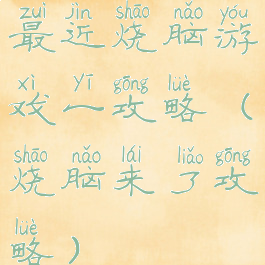 zuì jìn shāo nǎo yóu
最近烧脑游
xì yī gōng lüè
戏一攻略（
shāo nǎo lái liǎo gōng
烧脑来了攻
lüè
略）